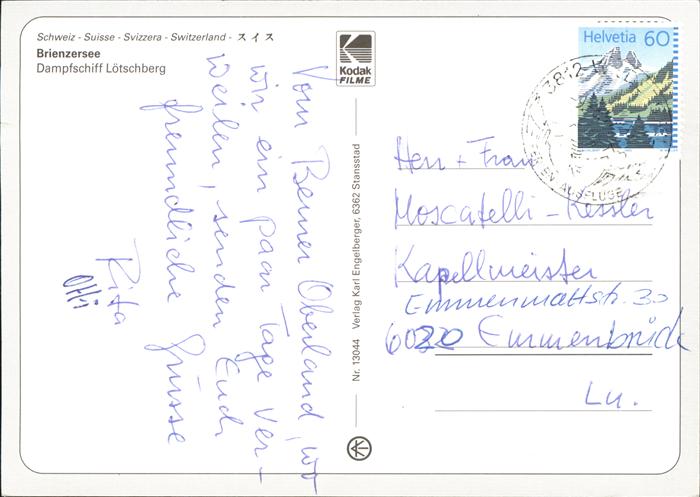 Schweiz - Suisse - Svizzera - Switzerland - スイス
Brienzersee
Dampfschiff Lötschberg
Kodak
FILME
Helvetia 60
3812
AUSFLÜGE
Vom Berner Oberland, wo
wir ein paar Tage ver-
weilen, senden Euch
freundliche Grüsse
Rita
Otti
Nr. 13044 Verlag Karl Engelberger, 6362 Stansstad
Herr + Frau
Moscatelli - Kessler
Kapellmeister
Emmenmattstr. 30
6020 Emmenbrück
Lu.